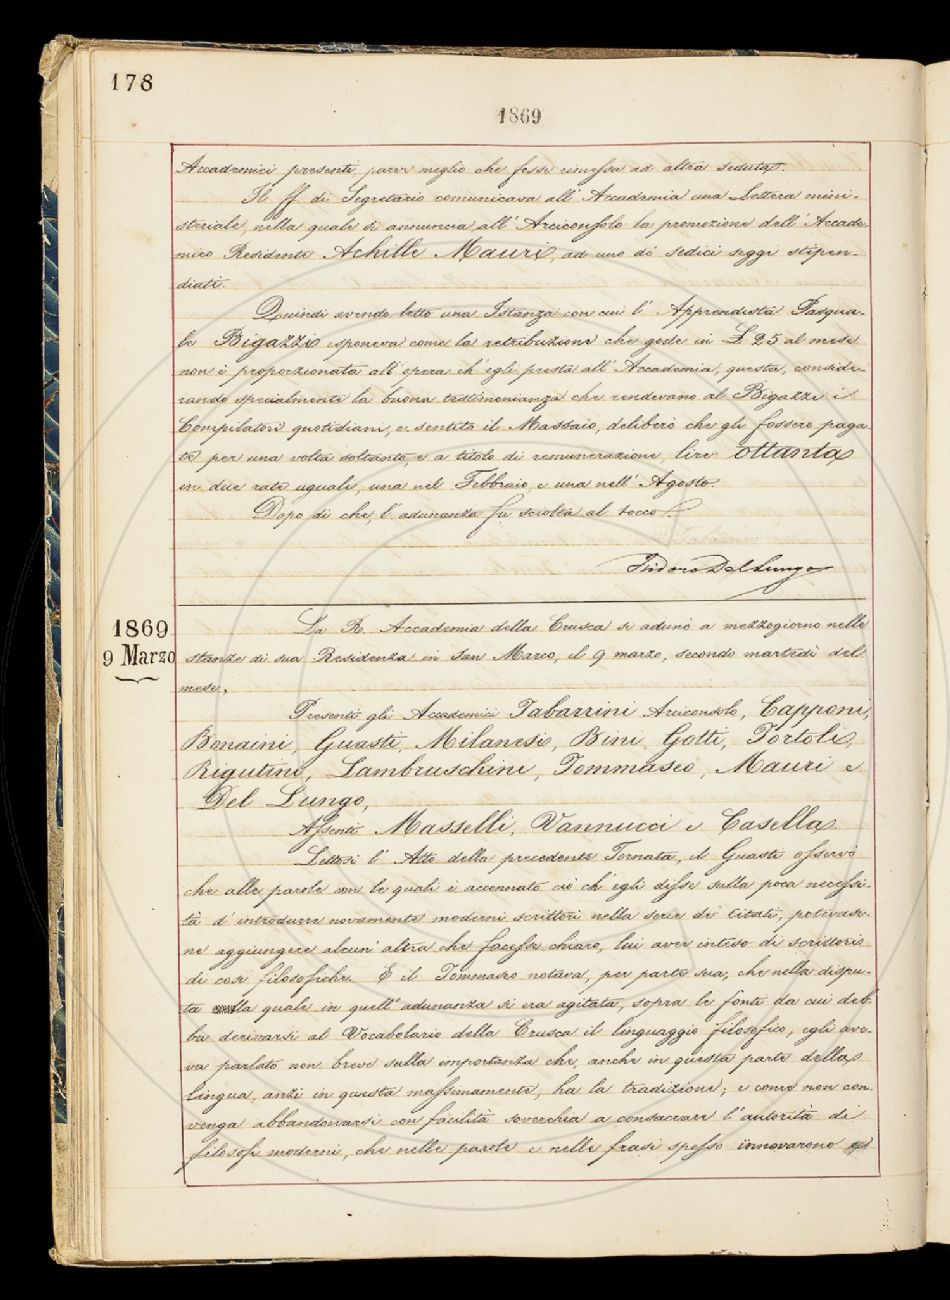 178
1869
Accademici presenti, parve meglio che fosse rimessa ad altra seduta.
Il ff. di Segretario comunicava all' Accademia una Lettera mini-
steriale, nella quale si annuncia all' Arciconsolo la promozione dell' Accade-
mico Residente Achille Mauri, ad uno dei sedici seggi stipen-
diati.
Quindi avendo letto una Istanza con cui l' Apprendista Pasqua-
le Bigazzi esponeva come la retribuzione che gode in £ 25 al mese
non è proporzionata all' opera ch' egli presta all' Accademia, questa, conside-
rando specialmente la buona testimonianza che rendevano al Bigazzi i
Compilatori quotidiani, e sentito il Massaio, deliberò che gli fossero paga-
te per una volta soltanto, e a titolo di remunerazione, lire ottanta
in due rate uguali, una nel Febbraio, e una nell' Agosto.
Dopo di che, l' adunanza fu sciolta al tocco.
Isidoro Del Lungo
1869
9 Marzo
La R. Accademia della Crusca si adunò a mezzogiorno nelle
stanze di sua Residenza in San Marco, il 9 marzo, secondo martedì del
mese.
Presenti gli Accademici Tabarrini Arciconsolo, Capponi,
Bonaini, Guasti, Milanesi, Bini, Gotti, Tortoli,
Rigutini, Lambruschini, Tommaseo, Mauri e
Del Lungo,
Assenti Masselli, Vannucci e Casella.
Lettosi l' Atto della precedente Tornata, il Guasti osservò
che alle parole con le quali è accennato ciò ch' egli disse sulla poca necessi-
tà d' introdurre novamente moderni scrittori nella serie de' Citati, potevase-
ne aggiungere alcun' altra che facesse chiaro, lui aver inteso di scrittori
di cose filosofiche. E il Tommaseo notava, per parte sua, che nella dispu-
ta la quale in quell' adunanza si era agitata, sopra le fonti da cui deb-
ba derivarsi al Vocabolario della Crusca il linguaggio filosofico, egli ave-
va parlato non breve sulla importanza che, anche in questa parte della
lingua, anzi in questa massimamente, ha la tradizione; e come non con-
venga abbandonarsi con facilità soverchia a consacrare l' autorità di
filosofi moderni, che nelle parole e nelle frasi spesso innovarono